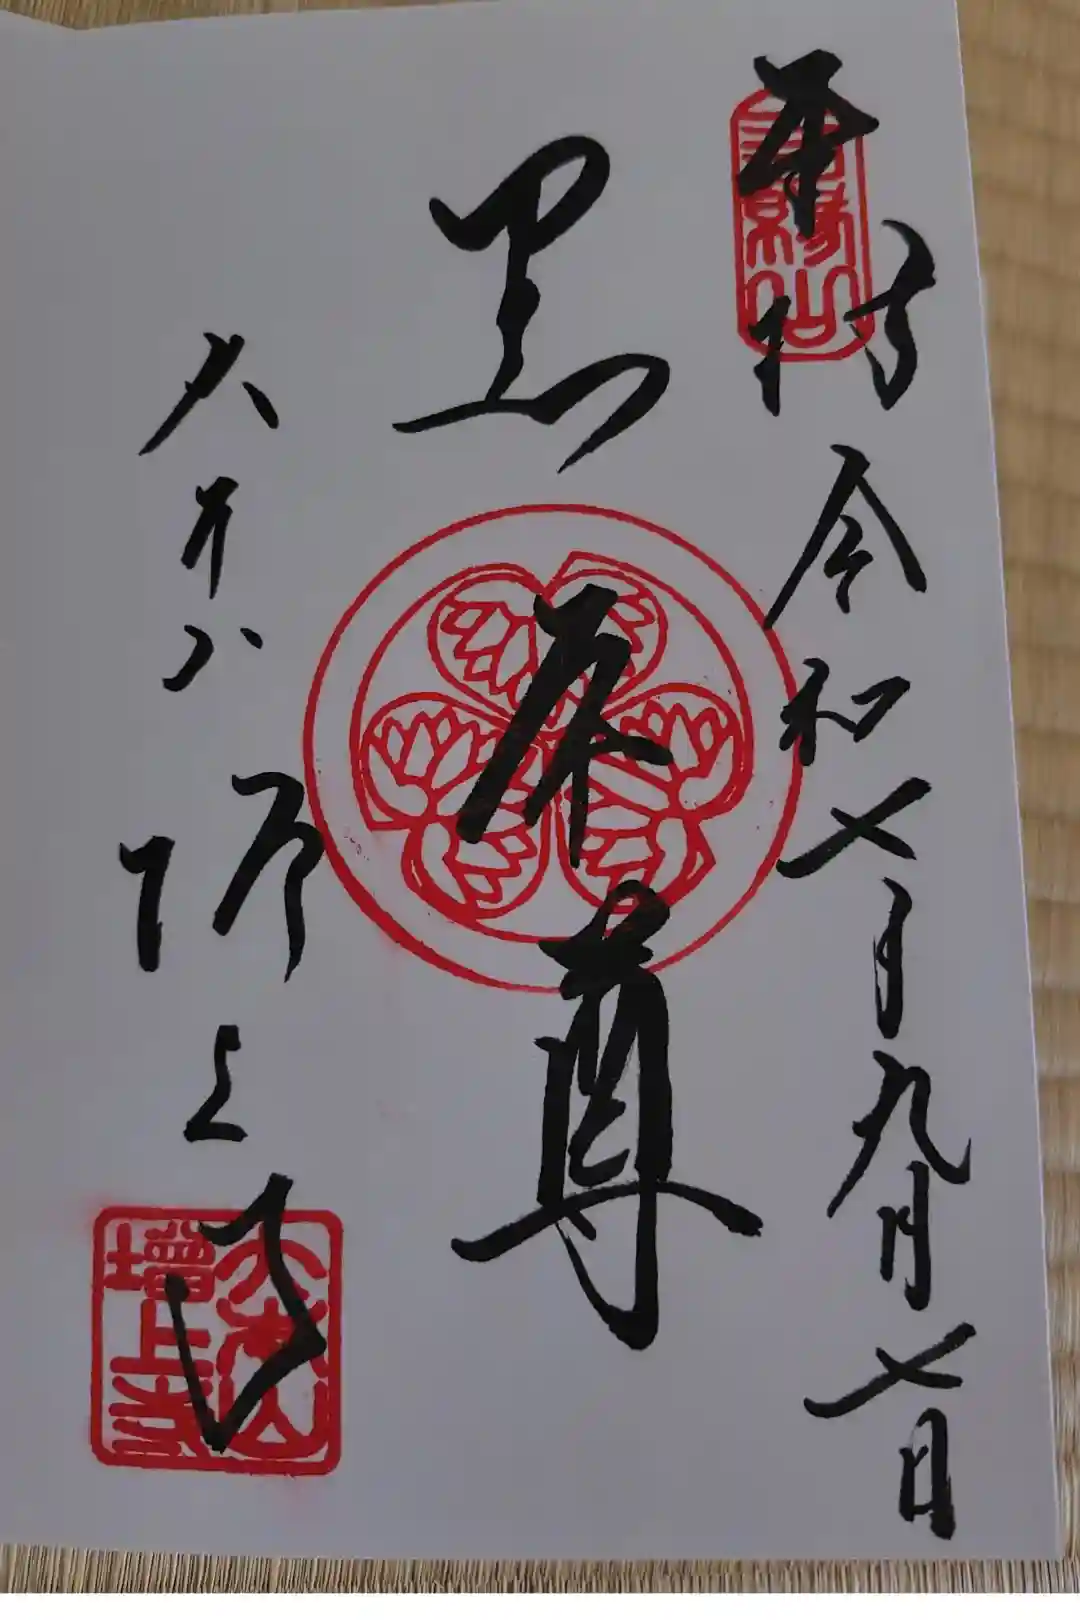 奉拝
令和七年九月七日
黒本尊
大本山
増上寺
大本山
増上寺